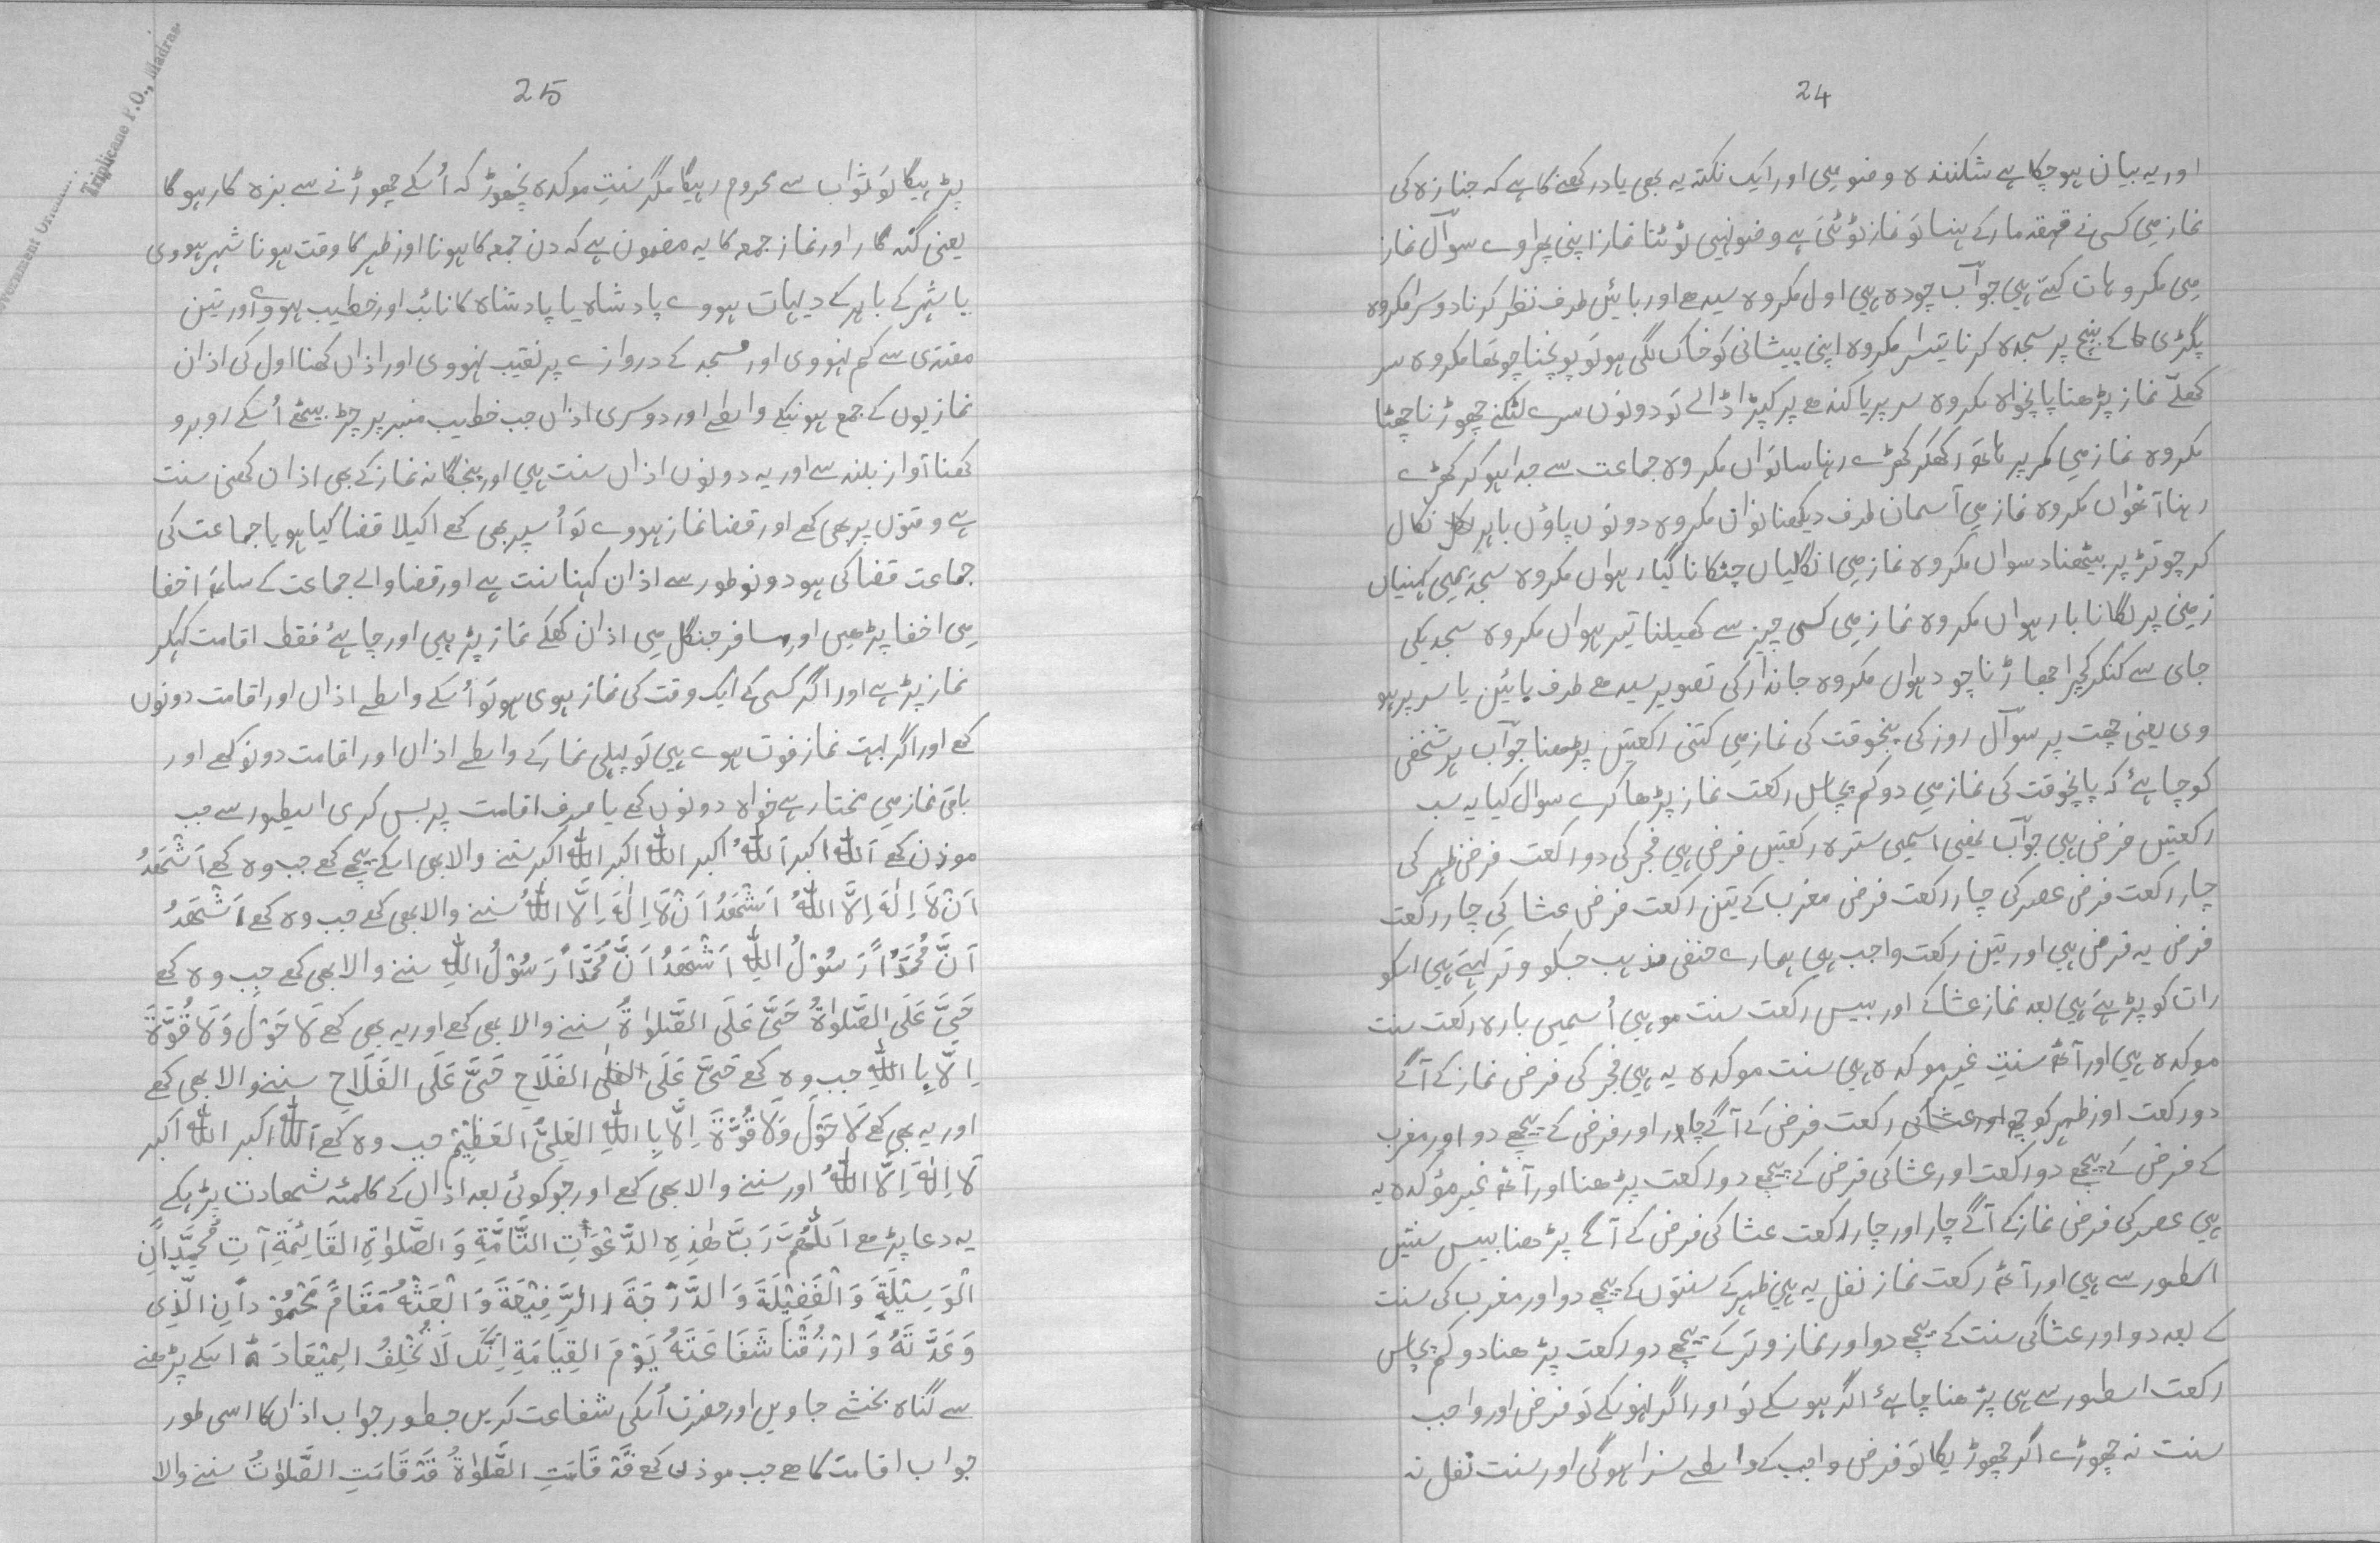 24
اور یہ بیان ہو چکا ہے شکنندہ وضو میں اور ایک نکتہ یہ بھی یاد رکھنے کا ہے کہ جنازہ کی
نماز میں کسی نے قہقہہ مار کے ہنسا تو نماز ٹوٹتی ہے وضو نہیں ٹوٹتا نماز اپنی پھراوے سوآل نماز
میں مکروہات کیتے ہیں جوآب چودہ ہیں اول مکروہ سیدھے اور بائیں طرف نظر کرنا دوسرا مکروہ
پگڑی کے پیچ پر سجدہ کرنا تیسرا مکروہ اپنی پیشانی کو خاک لگی ہو تو پونچنا چوتھا مکروہ سر
کھلے نماز پڑھنا پانچواں مکروہ سر پر یا کندھے پر کپڑا ڈالے تو دونوں سرے لٹکتے چھوڑنا چھٹا
مکروہ نماز میں کمر پر ہاتھ رکھکر کھڑے رہنا ساتواں مکروہ جماعت سے جدا ہو کر کھڑے
رہنا آٹھواں مکروہ نماز میں آسمان طرف دیکھنا نواں مکروہ دونوں پاؤں باہر نکال
کر چوتڑ پر بیٹھنا دسواں مکروہ نماز میں انگلیاں چٹکانا گیارہواں مکروہ سجدیمیں کہنیاں
زمین پر لگانا بارہواں مکروہ نماز میں کسی چیز سے کھیلنا تیرہواں مکروہ سجدیکی
جای سے کنکر کچرا جھاڑنا چودہواں مکروہ جاندار کی تصویر سیدھے طرف بائیں یا سر پر ہو
وی یعنی چھت پر سوآل روز کی پنجوقت کی نماز میں کتنی رکعتیں پڑھنا جوآب ہر شخص
کو چاہئے کہ پانچوقت کی نماز میں دو کم پچاس رکعت نماز پڑھا کرے سوال کیا یہ سب
رکعتیں فرض ہیں جوآب نہیں اسمیں سترہ رکعتیں فرض ہیں فجر کی دو رکعت فرض ظہر کی
چار رکعت فرض عصر کی چار رکعت فرض مغرب کے تین رکعت فرض عشا کی چار رکعت
فرض یہ فرض ہیں اور تین رکعت واجب ہیں ہمارے حنفی مذہب جسکو وتر کہتے ہیں اسکو
رات کو پڑہتے ہیں بعد نماز عشا کے اور بیس رکعت سنت مو ہیں اُسمیں بارہ رکعت سنت
موکدہ ہیں اور آٹھ سنتِ غیر موکدہ ہیں سنت موکدہ یہ ہیں فجر کی فرض نماز کے آگے
دو رکعت اور ظہر کو چو اور عشا کی رکعت فرض کے آگے چار اور فرض کے پیچھے دو اور مغرب
کے فرض کے پیچھے دو رکعت اور عشا کی فرض کے پیچھے دو رکعت پڑھنا اور آٹھ غیر مؤکدہ یہ
ہیں عصر کی فرض نماز کے آگے چار اور چار رکعت عشا کی فرض کے آگے پڑھنا بیس سنتیں
اسطور سے ہیں اور آٹھ رکعت نماز نفل یہ ہیں ظہر کے سنتوں کے پیچھے دو اور مغرب کی سنت
کے بعد دو اور عشا کی سنت کے پیچھے دو اور نماز وتر کے پیچھے دو رکعت پڑھنا دو کم پچاس
رکعت اسطور سے ہی پڑھنا چاہئے اگر ہو سکے تو اور اگر نہو سکے تو فرض اور واجب
سنت نہ چھوڑے اگر چھوڑیگا تو فرض واجب کے واسطے سزا ہوگی اور سنت نفل نہ
25
پڑہیگا تو ثواب سے محروم رہیگا مگر سنتِ موکدہ نچھوڑ کہ اُسکے چھوڑنے سے بزہ کار ہوگا
یعنی گنہ گار اور نماز جمعہ کا یہ مضمون ہے کہ دن جمعہ کا ہونا اور ظہر کا وقت ہونا شہر ہووی
یا شہر کے باہر کے دیہات ہووے پادشاہ یا پادشاہ کا نائب اور خطیب ہووے اور تین
مقتدی سے کم نہووی اور مسجد کے دروازے پر نقیب نہووی اور اذاں کھنا اول کی اذان
نمازیوں کے جمع ہونیکے واسطے اور دوسری اذاں جب خطیب منبر پر چڑ بیٹھے اُسکے روبرو
کھنا آواز بلند سے اور یہ دونوں اذاں سنت ہیں اور پنجگانہ نماز کے بھی اذاں کھنی سنت
ہے وقتوں پر بھی کھے اور قضا نماز ہووے تو اُسپر بھی کھے اکیلا قضا کیا ہو یا جماعت کی
جماعت قضا کی ہو دونو طور سے اذان کہنا سنت ہے اور قضا والے جماعت کے ساتھ اخفا
میں اخفا پڑھیں اور مسافر جنگل میں اذان کھکے نماز پڑہیں اور چاہئے فقط اقامت کہکر
نماز پڑہے اور اگر کسی کے ایک وقت کی نماز ہوی ہو تو اُسکے واسطے اذاں اور اقامت دونوں
کھے اور اگر بہت نماز فوت ہوے ہیں تو پہلی نماز کے واسطے اذاں اور اقامت دونو کھے اور
باقی نماز میں مختار ہے خواہ دونوں کھے یا صرف اقامت پر بس کری اسیطور سے جب
موذن کھے اَللّٰہُ اکبر اَللّٰہُ اکبر اللّٰہ اکبر اللّٰہ اکبر سننے والا بھی اسکے پیچھے کھے جب وہ کھے اَشْھَدُ
اَنْ لَا اِلٰہَ اِلَّا اللّٰہُ اَشْھَدُ اَنْ لَا اِلٰہَ اِلَّا اللّٰہُ سننے والا بھی کھے جب وہ کھے اَشْھَدُ
اَنَّ مُحَمَّدًا رَسُوْلُ اللّٰہِ اَشْھَدُ اَنَّ مُحَمَّدًا رَسُوْلُ اللّٰہِ سننے والا بھی کھے جب وہ کھے
حَیَّ عَلَی الصَّلوٰۃُ حَیَّ عَلَی الصَّلوٰۃُ سننے والا بھی کھے اور یہ بھی کھے لَا حَوْلَ وَلَا قُوَّۃَ
اِلَّا بِا اللّٰہِ جب وہ کھے حَیَّ عَلَی الفَلَاحِ حَیَّ عَلَی الفَلَاحِ سننے والا بھی کھے
اور یہ بھی کھے لَا حَوْلَ وَلَا قُوَّۃَ اِلَّا بِا اللّٰہِ العَلِیِّ العَظِیْمِ جب وہ کھے اَللّٰہُ اکبر اللّٰہ اکبر
لَا اِلٰہَ اِلَّا اللّٰہُ اور سننے والا بھی کھے اور جو کوئی بعد اذاں کے کلمئہ شھادت پڑہکے
یہ دعا پڑھے اَللّٰھُمَّ رَبَّ ھٰذِہِ الدَّعْوَاتِ التَّامَّۃِ وَالصَّلوٰۃِ القَائِمَۃِ آتِ مُحَمَّدَانِ
الْوَسِیْلَۃَ وَالْفَضِیْلَۃَ وَالدَّرَجَۃَ الرَّفِیْعَۃَ وَابْعَثْہُ مَقَامً مَحْمُوْدَانِ الَّذِی
وَعَدَّتَہُ وَارْزُقْنَا شَفَاعَتَہُ یَوْمَ القِیَامَۃِ اِنَّکَ لَا تُخْلِفُ الِمیْعَادَ اسکے پڑھنے
سے گناہ بخشے جاویں اور حضرت اُسکی شفاعت کریں جسطور جواب اذاں کا اسی طور
جواب اقامت کا ھے جب موذن کھے قَدْ قَامَتِ الصَّلوٰۃُ قَدْ قَامَتِ الصَّلوٰتُ سننے والا
Triplicane P.O., Madras.